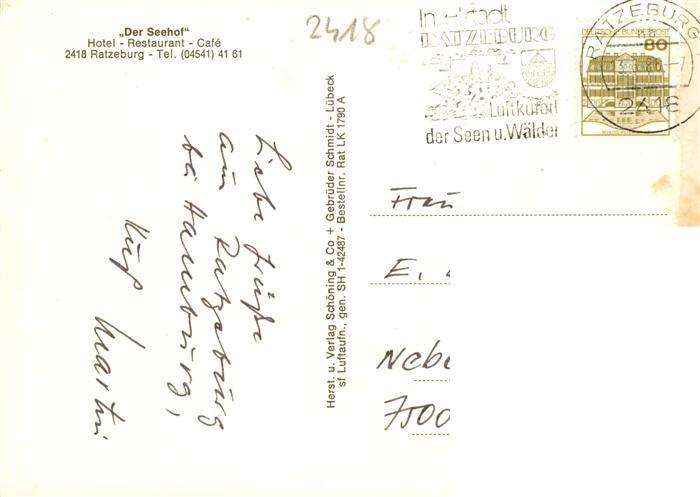 „Der Seehof"
Hotel - Restaurant - Café
2418 Ratzeburg - Tel. (04541) 41 61
2418
Inselstadt
RATZEBURG
Luftkurort
der Seen u. Wälder
RATZEBURG
2418
DEUTSCHE BUNDESPOST
80
Liebe Grüße
aus Ratzeburg
bei Hamburg,
Kuß Martin
Herst. u. Verlag Schöning & Co + Gebrüder Schmidt - Lübeck
sf Luftaufn., gen. SH 1-42487 - Bestellnr. Rat LK 1790 A
Frau
E.
Nebe
7500